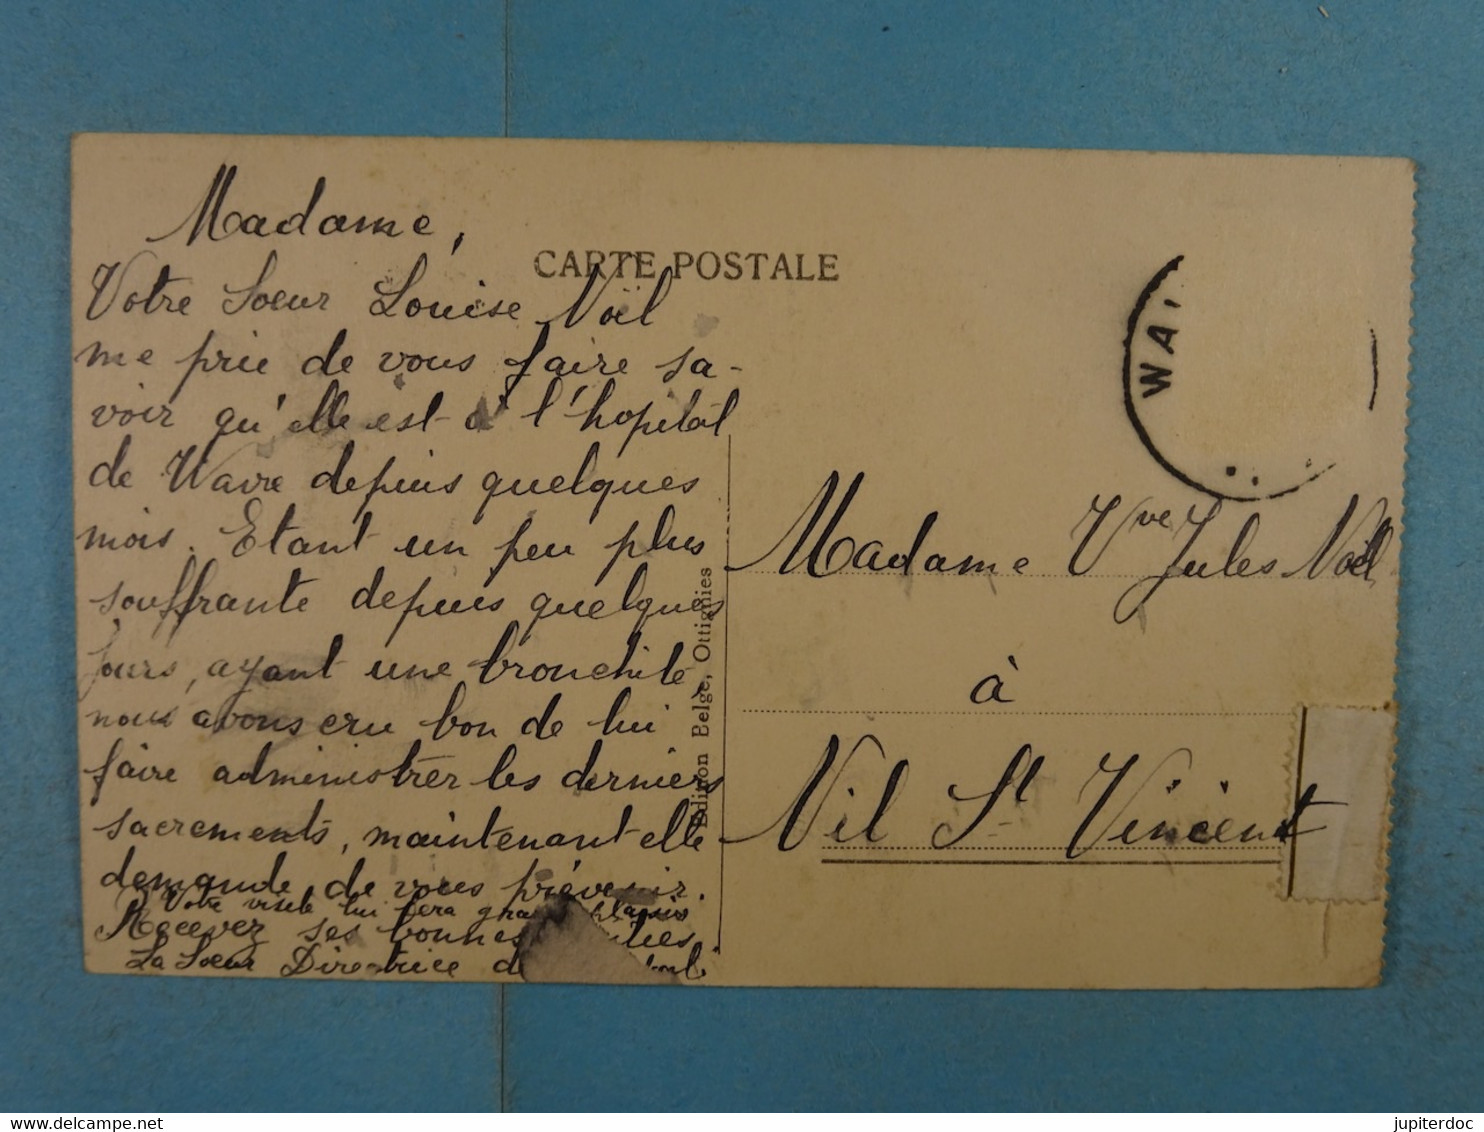 Madame,
CARTE POSTALE
Votre Soeur Louise Noël
me prie de vous faire sa-
voir qu'elle est à l'hopital
de Wavre depuis quelques
mois. Etant un peu plus
souffrante depuis quelques
jours, ayant une bronchite
nous avons cru bon de lui
faire administrer les derniers
sacrements, maintenant elle
demande de vous prévenir.
Votre visite lui fera plaisir
Recevez ses bonnes
La Soeur Directrice
Edition Belge, Ottignies
WA
Madame Vve Jules Noël
à
Nil St Vincent
jupiterdoc